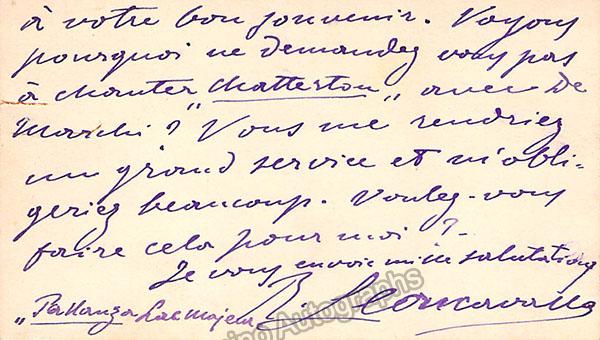 à votre bon souvenir. Voyons
pourquoi ne demandez vous pas
à chanter „Chatterton„ avec De
Marchi? Vous me rendriez
un grand service et m'obli-
geriez beaucoup. Voulez-vous
faire cela pour moi?
Je vous envoie mille salutations
„Pallanza Lac Majeur R. Leoncavallo
Autographs